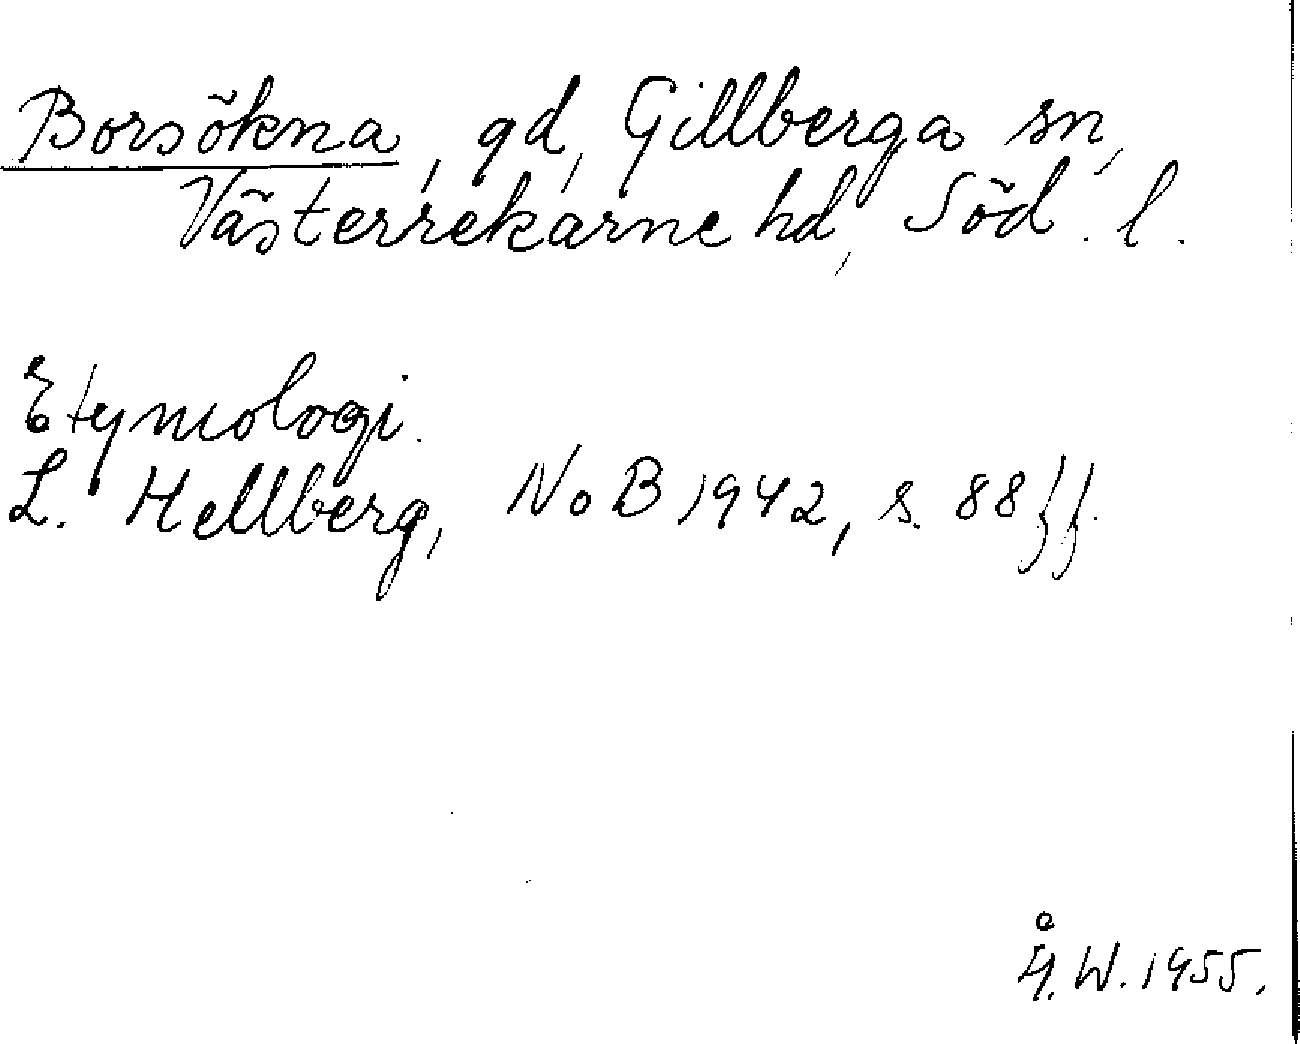 Borsökna, gd, Gillberga sn,
Västerrekarne hd, Söd. l.
Etymologi.
L. Hellberg, NoB 1942, s. 88 ff.
Å. W. 1955.